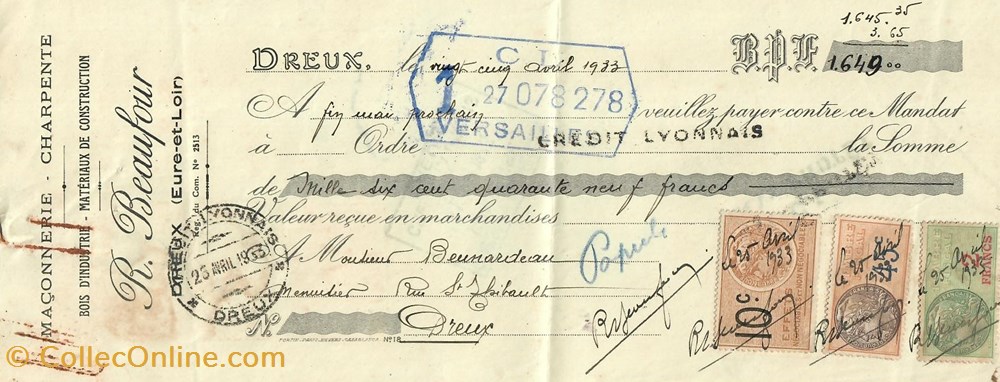 MAÇONNERIE - CHARPENTE
BOIS D'INDUSTRIE - MATÉRIAUX DE CONSTRUCTION
R. Beaufour
DREUX (Eure-et-Loir)
du Com. N° 2513
1.645.35
3.65
DREUX, le vingt cinq avril 1933
B.P.F. 1.649.00
C L
1
27 078 278
VERSAILLES
A fin mai prochain veuillez payer contre ce Mandat
à Ordre CREDIT LYONNAIS la Somme
de Mille six cent quarante neuf francs
Valeur reçue en marchandises
A Monsieur Besnardeau
Menuisier Rue St Thibault
Dreux
N°
N° 18
CREDIT LYONNAIS
25 AVRIL 1933
DREUX
10 c.
EFFETS
le 25 Avril
1933
le 25
1933
le 25 Avril
1933
FRANCS
© CollecOnline.com